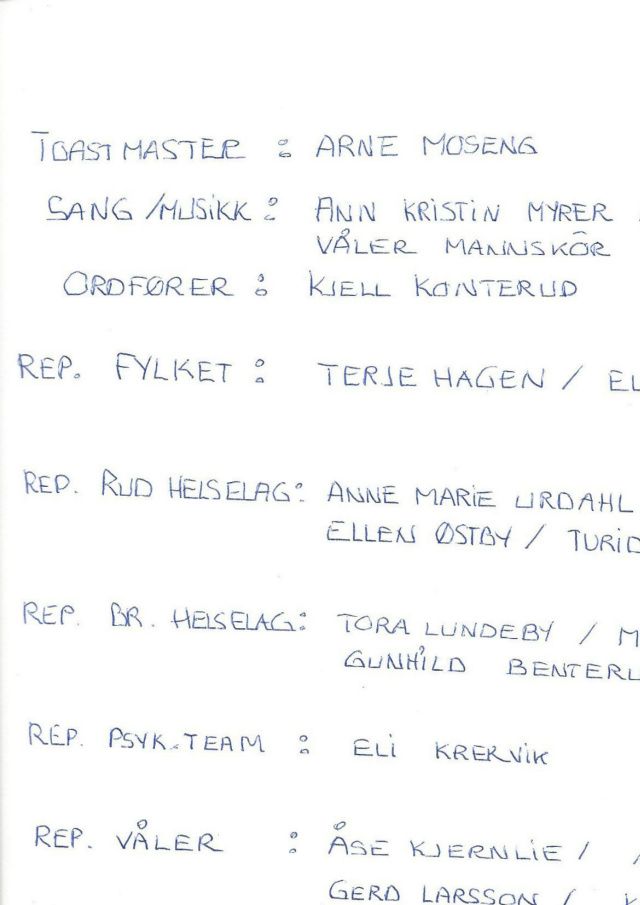 TOASTMASTER : ARNE MOSENG
SANG/MUSIKK : ANN KRISTIN MYRER
VÅLER MANNSKÔR
ORDFØRER : KJELL KONTERUD
REP. FYLKET : TERJE HAGEN / EL
REP. RUD HELSELAG : ANNE MARIE URDAHL
ELLEN ØSTBY / TURID
REP. BR. HELSELAG : TORA LUNDEBY / M
GUNHILD BENTERU
REP. PSYK.TEAM : ELI KRERVIK
REP. VÅLER : ÅSE KJERNLIE /
GERD LARSSON /